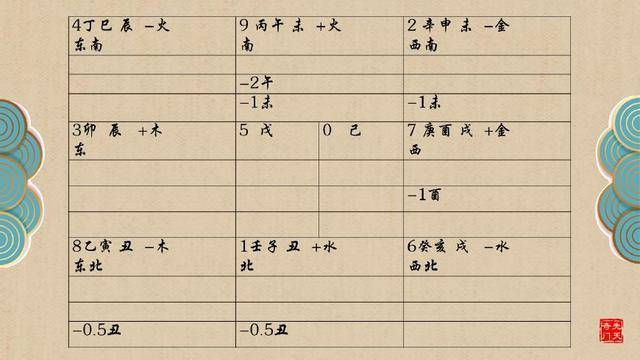 4丁巳 辰 −火
东南
9 丙午 未 +火
南
−2午
−1未
2 辛申 未 −金
西南
−1未
3卯 辰 +木
东
5 戌
0 己
7 庚酉 戌 +金
西
−1酉
8乙寅 丑 −木
东北
−0.5丑
1壬子 丑 +水
北
−0.5丑
6癸亥 戌 −水
西北